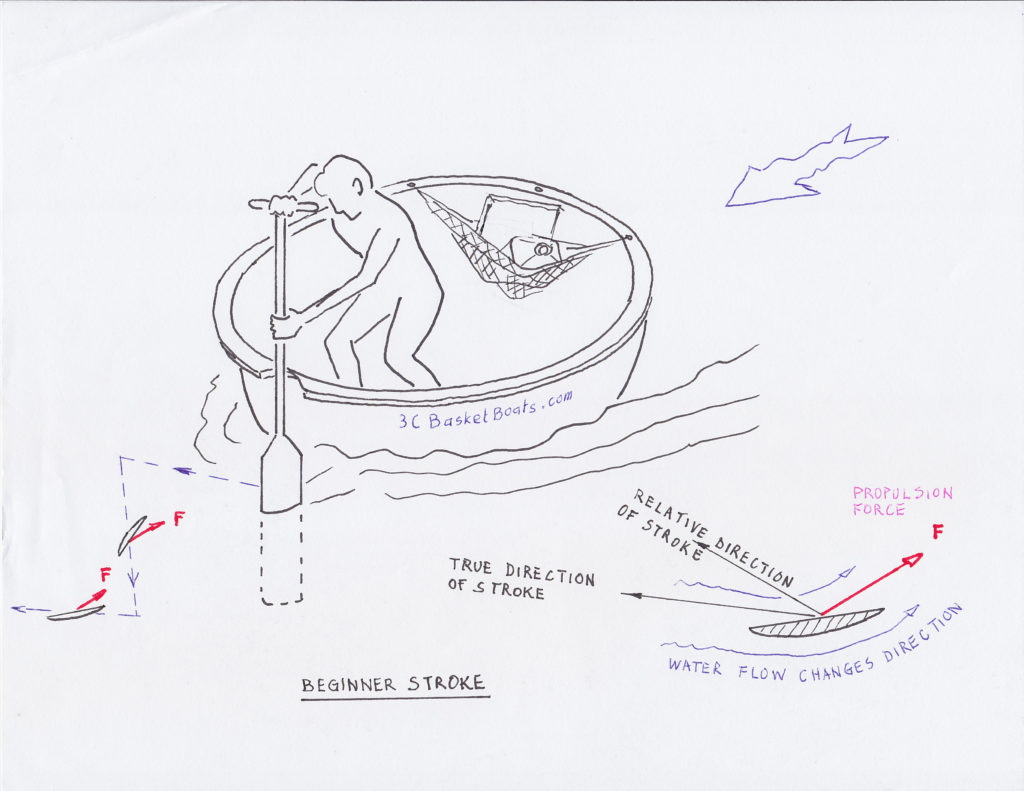 3C BasketBoats.com
F
F
RELATIVE DIRECTION
OF STROKE
PROPULSION
FORCE
F
TRUE DIRECTION
OF STROKE
WATER FLOW CHANGES DIRECTION
BEGINNER STROKE